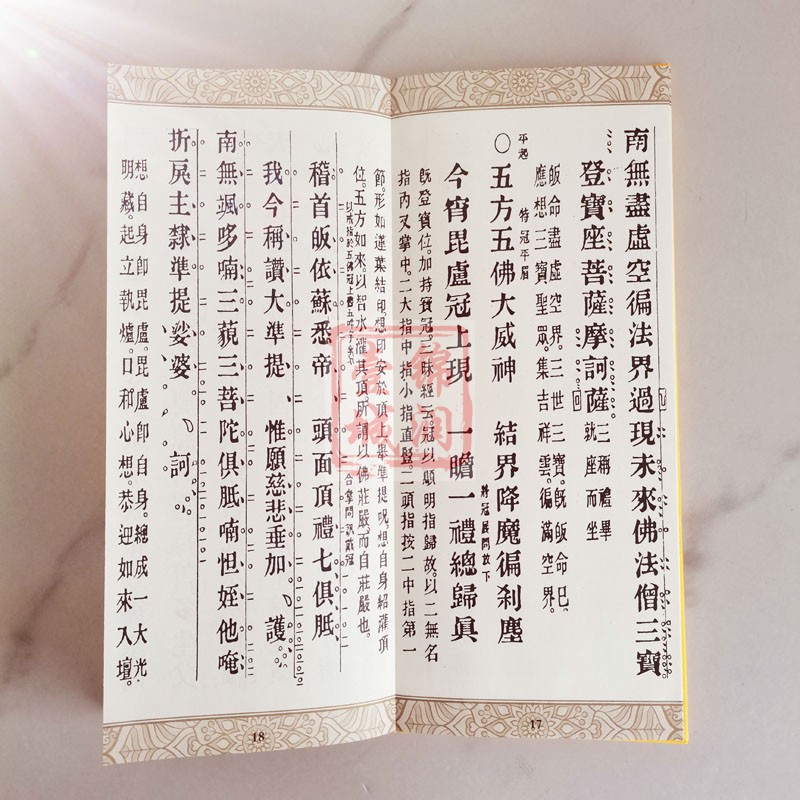 南無盡虛空徧法界過現未來佛法僧三寶
登寶座菩薩摩訶薩。
三稱禮畢
就座而坐
皈命盡虛空界。三世三寶。旣皈命已。
應想三寶聖眾。集吉祥雲。徧滿空界。
平起
〇五方五佛大威神 結界降魔徧刹塵
持冠平眉
今宵毘盧冠上現 一瞻一禮總歸眞
將冠展問放下
旣登寶位。加持寶冠。三昧經云。冠以顯明指歸故。以二無名
指內叉掌中。二大指中指小指直豎。二頭指按二中指第一
節。形如蓮葉結印。想印安於頂上。舉準提呪。想自身紹灌頂
位。五方如來。以智水灌其頂。所謂以佛莊嚴。而自莊嚴也。
合掌問訊戴冠
稽首皈依蘇悉帝 頭面頂禮七俱胝
我今稱讚大準提 惟願慈悲垂加護。
南無颯哆喃三藐三菩陀俱胝喃怛姪他唵
折戾主隸準提娑婆訶
想自身卽毘盧。毘盧卽自身。總成一大光
明藏。起立執爐。口和心想。恭迎如來入壇。
錦潤
雲城
17
18